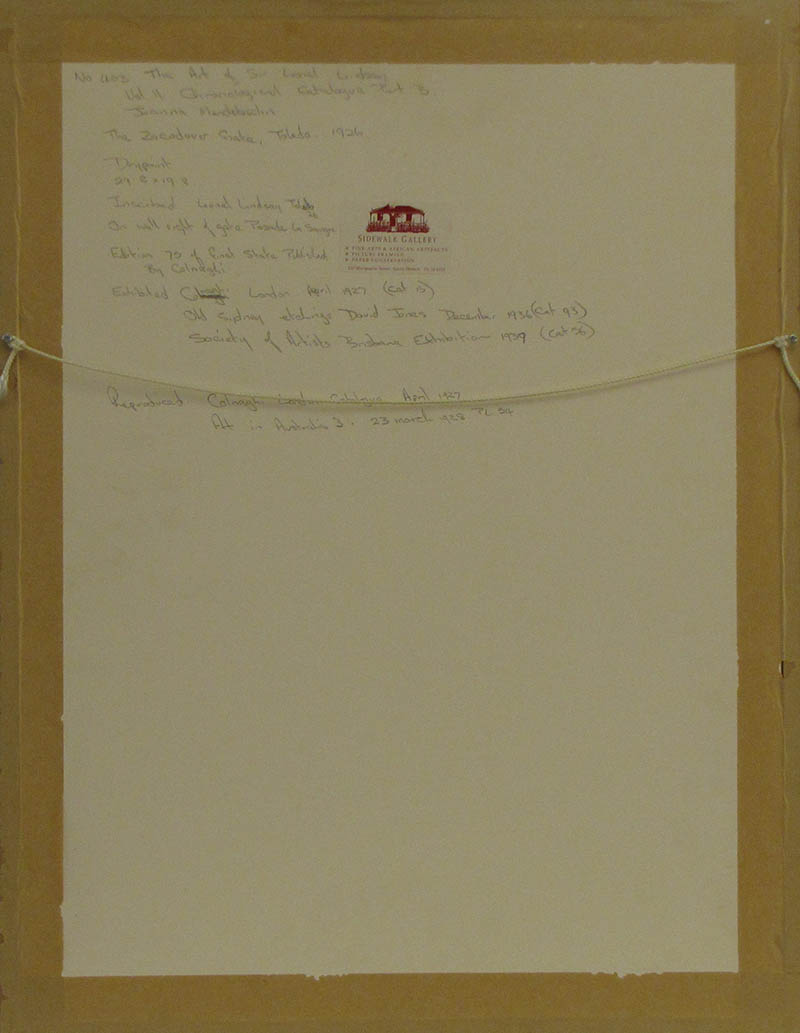 No 403 The Art of Sir Lionel Lindsay
Vol II Chronological Catalogue Part B.
Joanna Mendelssohn
The Zocodover Gate, Toledo. 1926
Drypoint
29.8 x 19.8
Inscribed Lionel Lindsay Toledo
On wall right of gate Posada La Sangre
SIDEWALK GALLERY
FINE ARTS & AFRICAN ARTIFACTS
PICTURE FRAMING
PAPER CONSERVATION
Edition 75 of final State Published
By Colnaghi
Exhibited London April 1927 (Cat 13)
Old Sydney etchings David Jones December 1936 (Cat 93)
Society of Artists Brisbane Exhibition 1939 (Cat 56)
Reproduced Colnaghi London Catalogue April 1927
Art in Australia 3. 23 march 1928 PL 54